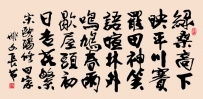 綠桑高下
映平川賽
罷田神笑
語喧林外
鳴鳩春雨
歇屋頭初
日杏花繁
宋歐陽修田家